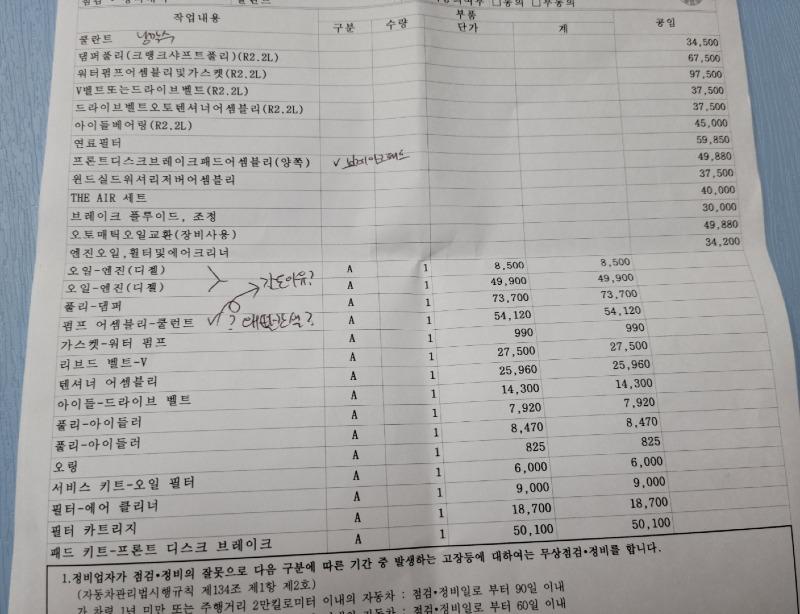 작업내용 구분 수량 부품 단가 계 공임
쿨란트 냉각수 34,500
댐퍼풀리(크랭크샤프트풀리)(R2.2L) 67,500
워터펌프어셈블리및가스켓(R2.2L) 97,500
V벨트또는드라이브벨트(R2.2L) 37,500
드라이브벨트오토텐셔너어셈블리(R2.2L) 37,500
아이들베어링(R2.2L) 45,000
연료필터 59,850
프론트디스크브레이크패드어셈블리(양쪽) ✓ 49,880
윈드실드워셔리저버어셈블리 37,500
THE AIR 세트 40,000
브레이크 플루이드, 조정 30,000
오토매틱오일교환(장비사용) 49,880
엔진오일,휠터및에어크리너 34,200
오일-엔진(디젤) A 1 8,500 8,500
오일-엔진(디젤) A 1 49,900 49,900
풀리-댐퍼 A 1 73,700 73,700
펌프 어셈블리-쿨런트 ✓ ? A 1 54,120 54,120
가스켓-워터 펌프 A 1 990 990
리브드 벨트-V A 1 27,500 27,500
텐셔너 어셈블리 A 1 25,960 25,960
아이들-드라이브 벨트 A 1 14,300 14,300
풀리-아이들러 A 1 7,920 7,920
풀리-아이들러 A 1 8,470 8,470
오링 A 1 825 825
서비스 키트-오일 필터 A 1 6,000 6,000
필터-에어 클리너 A 1 9,000 9,000
필터 카트리지 A 1 18,700 18,700
패드 키트-프론트 디스크 브레이크 A 1 50,100 50,100
1.정비업자가 점검•정비의 잘못으로 다음 구분에 따른 기간 중 발생하는 고장등에 대하여는 무상점검•정비를 합니다.
(자동차관리법시행규칙 제134조 제1항 제2호)
가.차령 1년 미만 또는 주행거리 2만킬로미터 이내의 자동차 : 점검•정비일로 부터 90일 이내
점검•정비일로 부터 60일 이내